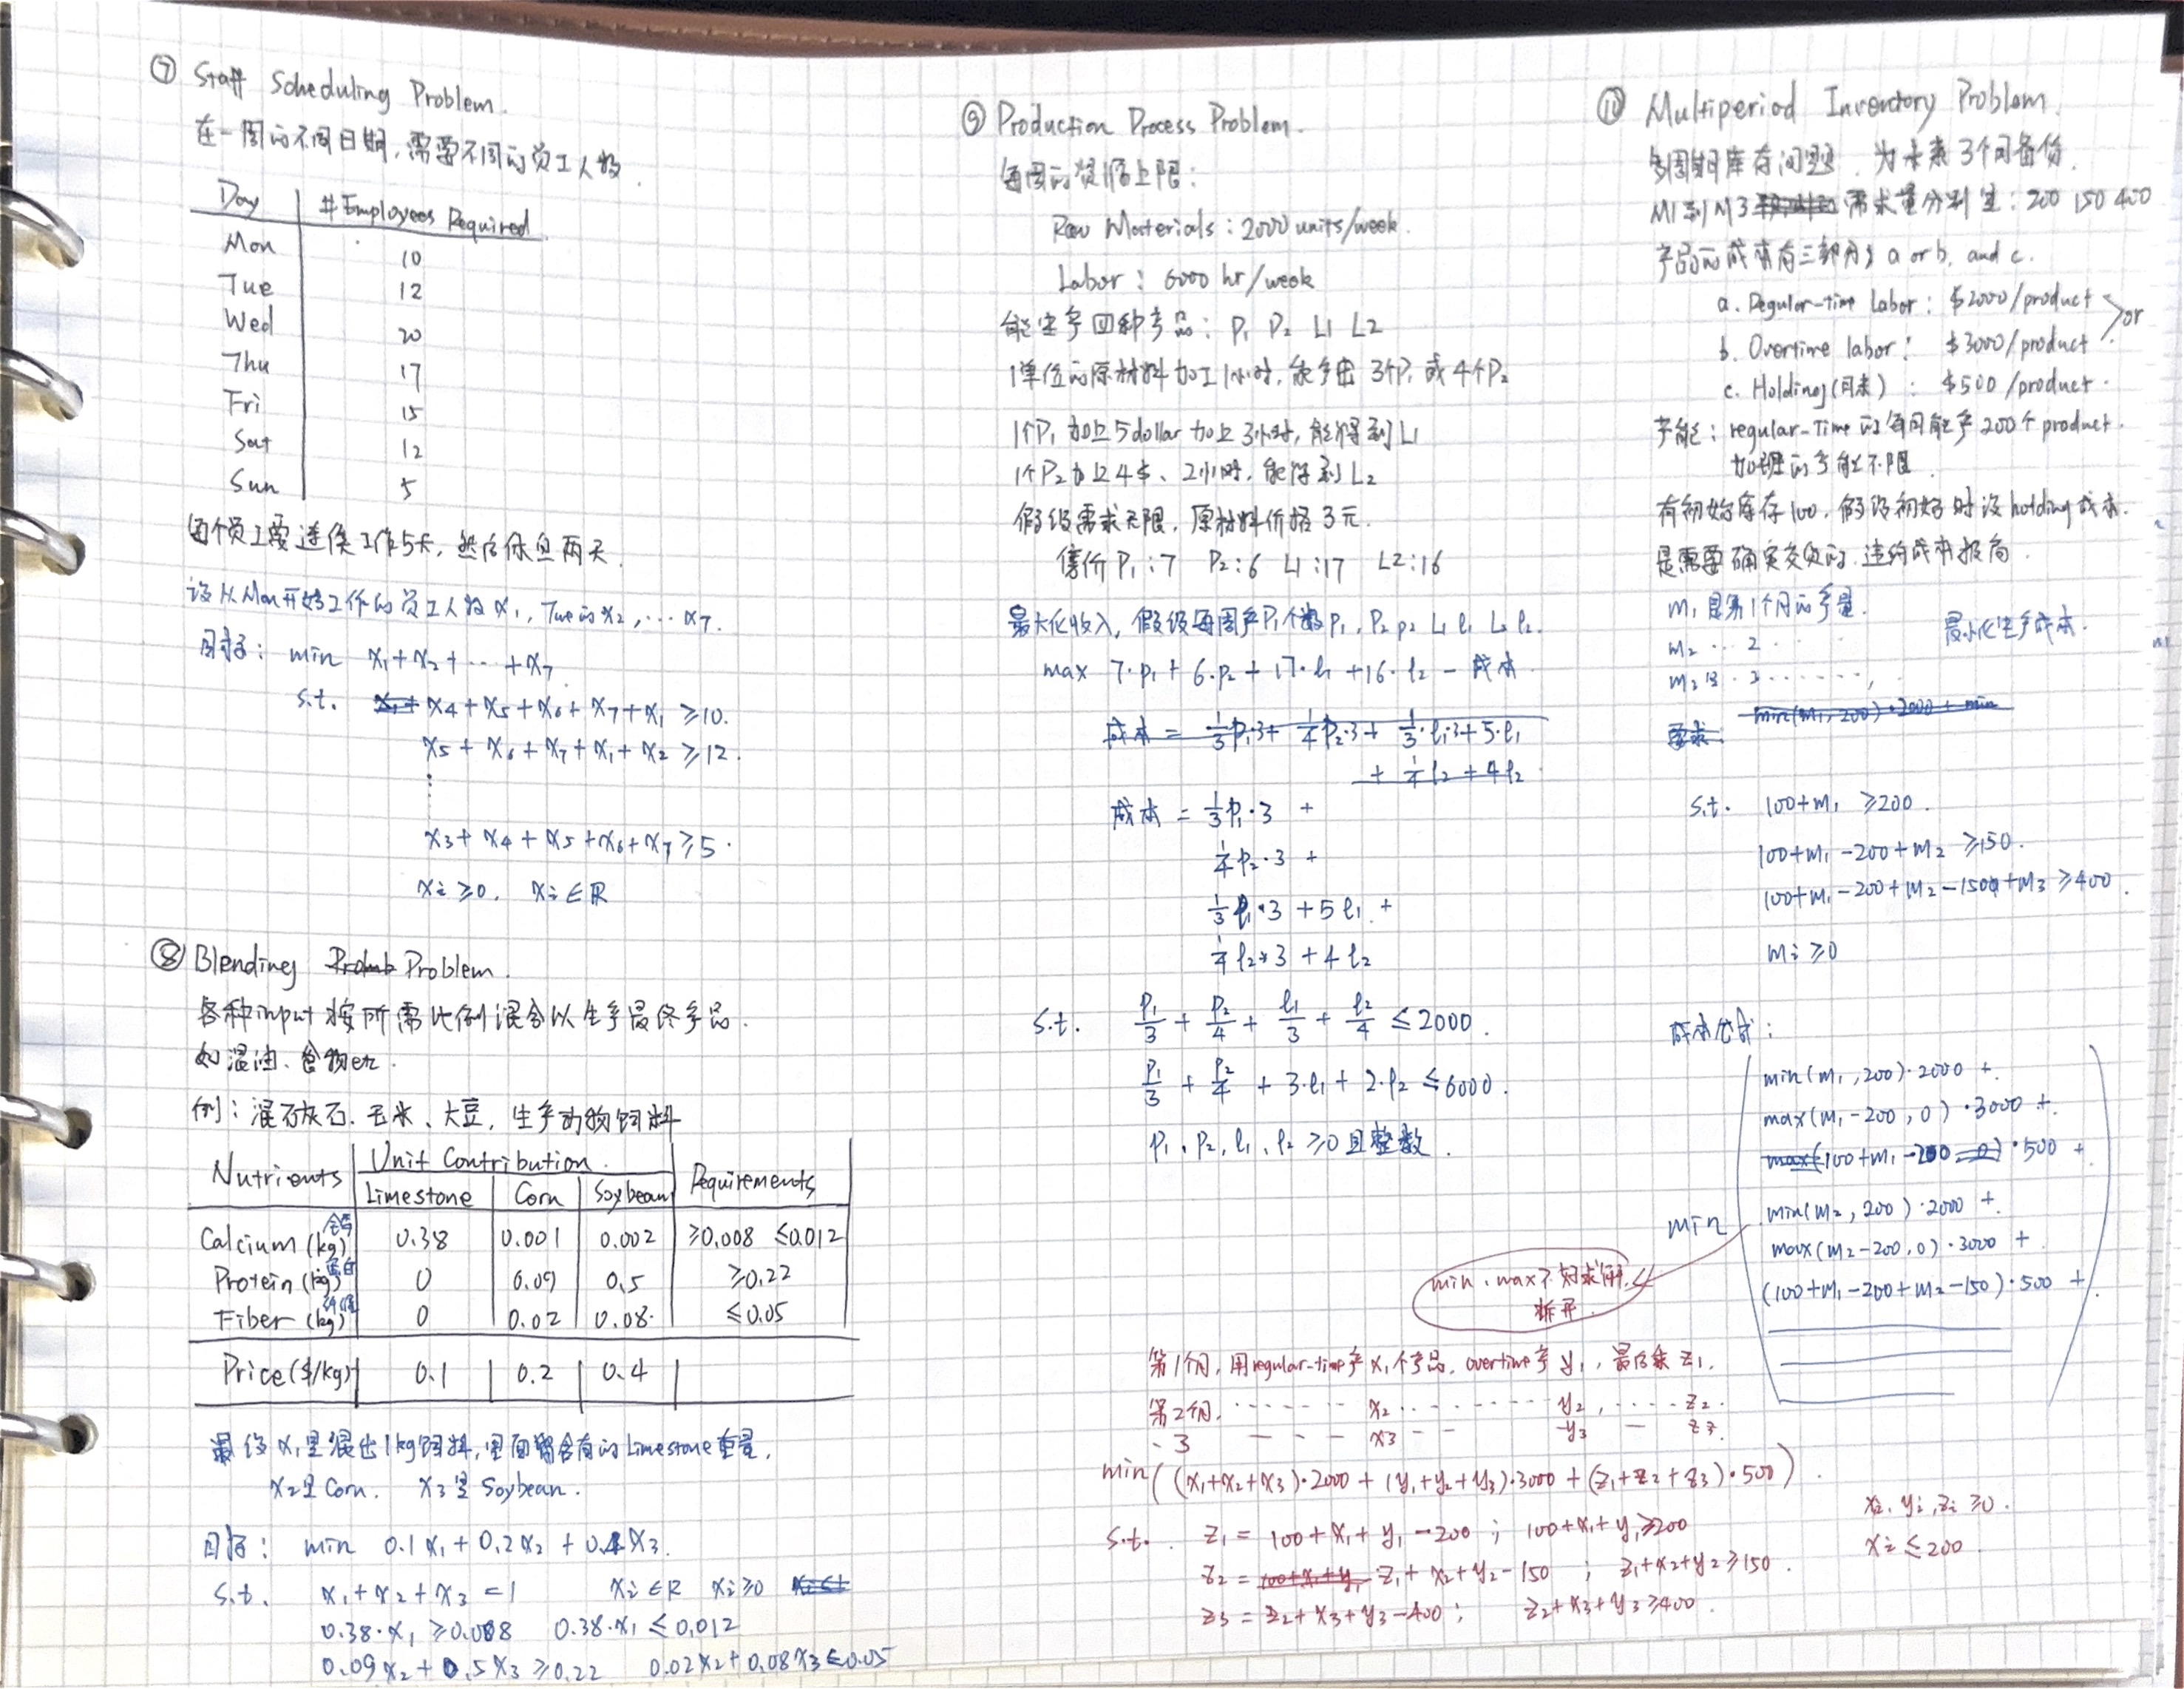 ⑦ Staff Scheduling Problem.
在一周的不同日期,需要不同的员工人数.
Day | # Employees Required
Mon 10
Tue 12
Wed 20
Thu 17
Fri 15
Sat 12
Sun 5
每个员工要连续工作5天,然后休息两天.
设从Mon开始工作的员工人数 x₁, Tue的 x₂, … x₇.
目标: min x₁+x₂+ … +x₇
s.t. x₄+x₅+x₆+x₇+x₁ ≥10.
x₅+x₆+x₇+x₁+x₂ ≥12.
⋮
x₃+x₄+x₅+x₆+x₇ ≥5.
xᵢ ≥0, xᵢ ∈ R
⑧ Blending Problem.
各种input按所需比例混合以生产最终产品.
如混油、食物etc.
例: 混石灰石、玉米、大豆, 生产动物饲料
Nutrients | Unit Contribution | Requirements
Limestone | Corn | Soybean
Calcium (kg) 钙 0.38 0.001 0.002 ≥0.008 ≤0.012
Protein (kg) 蛋白 0 0.09 0.5 ≥0.22
Fiber (kg) 纤维 0 0.02 0.08 ≤0.05
Price ($/kg) 0.1 0.2 0.4
设 x₁是混出1kg饲料,里面含有的Limestone重量,
x₂是Corn. x₃是Soybean.
目标: min 0.1x₁+0.2x₂+0.4x₃.
s.t. x₁+x₂+x₃ =1 xᵢ∈R xᵢ≥0
0.38·x₁ ≥0.008 0.38·x₁ ≤0.012
0.09x₂+0.5x₃ ≥0.22 0.02x₂+0.08x₃≤0.05
⑨ Production Process Problem.
每周的资源上限:
Raw Materials: 2000 units/week.
Labor: 6000 hr/week
能生产四种产品: P₁ P₂ L1 L2
1单位的原材料加工1小时,能产出 3个P₁ 或 4个P₂
1个P₁ 加上5dollar 加上3小时,能得到L₁
1个P₂加上4$、2小时,能得到L₂
假设需求无限, 原材料价格3元.
售价 P₁:7 P₂:6 L1:17 L2:16
最大化收入, 假设每周产P₁个数p₁, P₂ p₂ L₁ l₁ L₂ l₂.
max 7·p₁+6·p₂+17·l₁+16·l₂ − 成本
成本 = 1/3p₁·3+ 1/4p₂·3+ 1/3·l₁·3+5·l₁
+ 1/4l₂+4l₂
成本 = 1/3p₁·3 +
1/4p₂·3 +
1/3l₁·3+5l₁ +
1/4l₂·3+4l₂
s.t. p₁/3 + p₂/4 + l₁/3 + l₂/4 ≤2000.
p₁/3 + p₂/4 + 3·l₁+2·l₂ ≤6000.
p₁、p₂、l₁、l₂ ≥0且整数.
⑩ Multiperiod Inventory Problem.
多周期库存问题. 为未来3个月备货.
M1到M3需求量分别是: 200 150 400
产品的成本有三部分: a or b, and c.
a. Regular-time Labor: $2000/product
b. Overtime labor: $3000/product
or
c. Holding(月末): $500/product.
产能: regular-time的每月能产200个product.
加班的产能不限.
有初始库存100, 假设初始时没holding成本.
是需要确实交货的, 违约成本极高.
m₁ 是第1个月的产量.
m₂ … 2 …
m₃是 · 3 ……,
最小化生产成本.
要求: min(m₁,200)·2000 + min
s.t. 100+m₁ ≥200.
100+m₁−200+m₂ ≥150.
100+m₁−200+m₂−150+m₃ ≥400.
mᵢ ≥0
min
min(m₁,200)·2000 +
max(m₁−200,0)·3000 +
(100+m₁−200)·500 +
min(m₂,200)·2000 +
max(m₂−200,0)·3000 +
(100+m₁−200+m₂−150)·500 +
min、max不好求解,
拆开.
第1个月, 用regular-time产x₁个产品, overtime产y₁, 最后余z₁.
第2个月, …… x₂ …… y₂, …… z₂.
· 3 — — x₃ — — y₃ — z₃.
min((x₁+x₂+x₃)·2000+(y₁+y₂+y₃)·3000+(z₁+z₂+z₃)·500).
s.t. z₁= 100+x₁+y₁−200 ; 100+x₁+y₁≥200
z₂= 100+x₁+y₁ z₁+x₂+y₂−150 ; z₁+x₂+y₂≥150.
z₃= z₂+x₃+y₃−400 ; z₂+x₃+y₃≥400.
xᵢ, yᵢ, zᵢ ≥0.
xᵢ ≤200